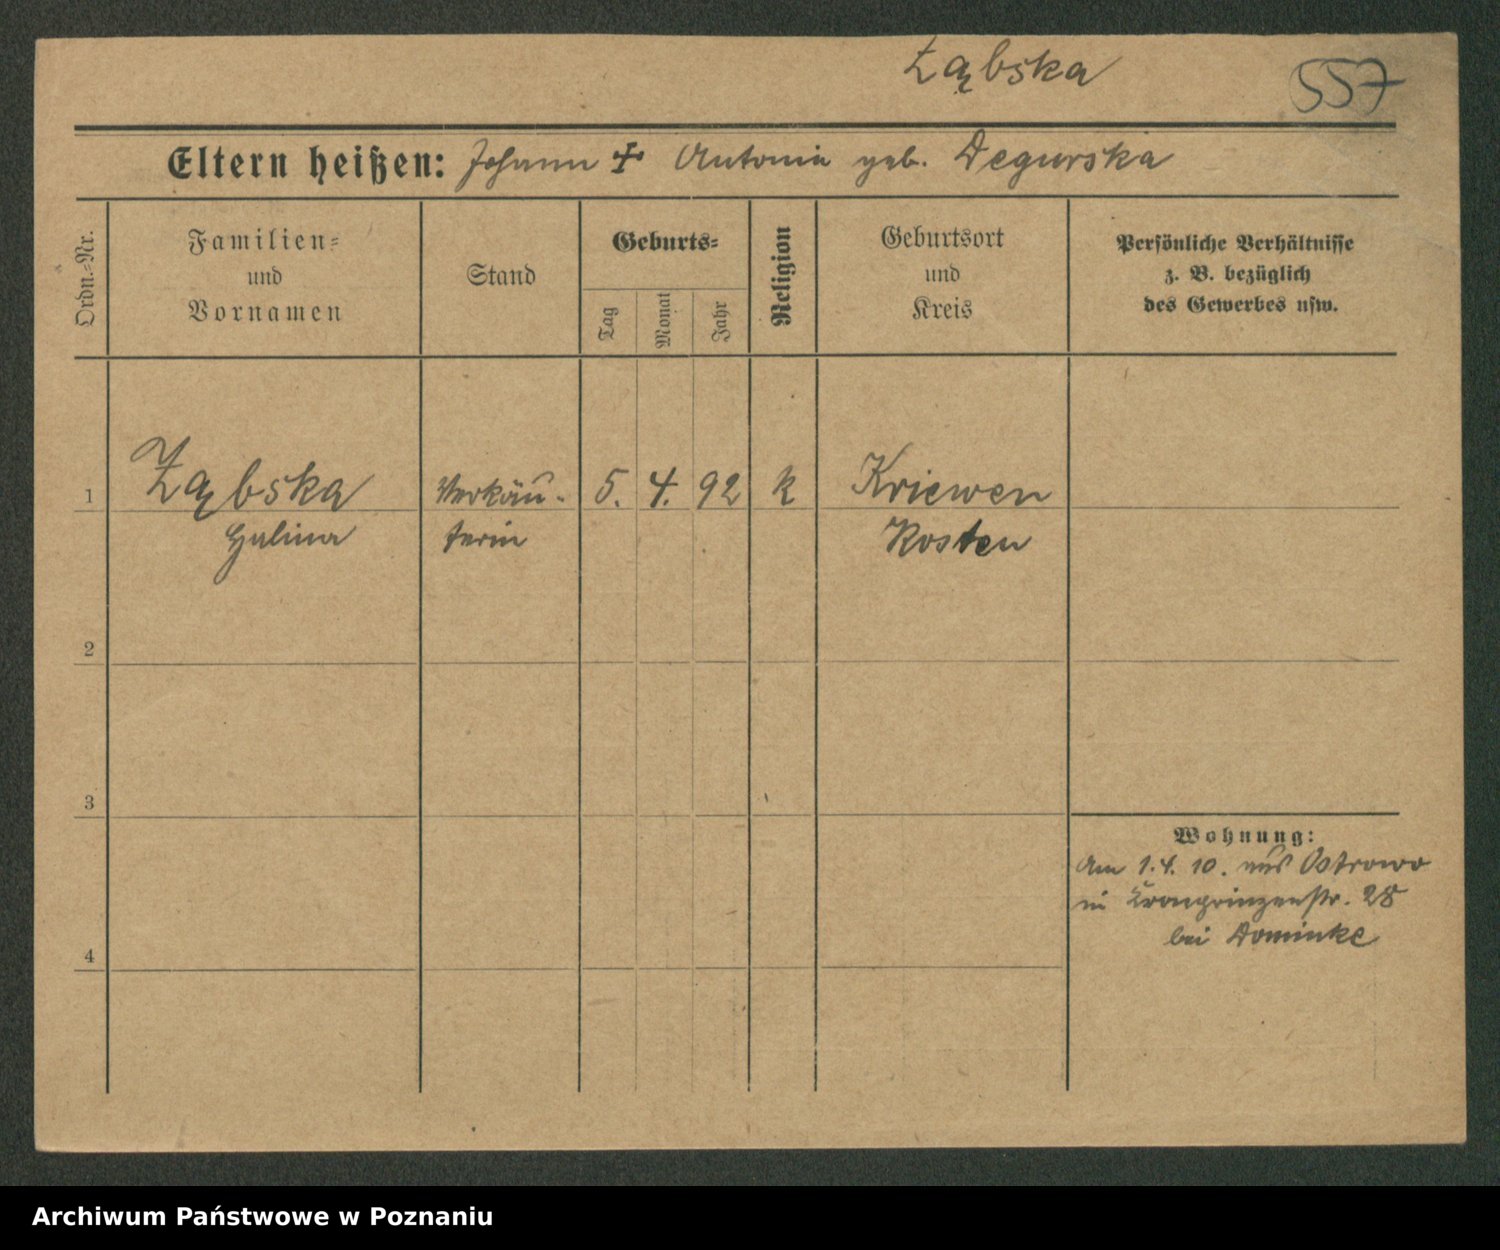 Ząbska
557
Eltern heißen: Johann + Antonia geb. Degurska
Ordn.=Nr.
Familien=
und
Vornamen
Stand
Geburts=
Tag
Monat
Jahr
Religion
Geburtsort
und
Kreis
Persönliche Verhältnisse
z. B. bezüglich
des Gewerbes usw.
1 Ząbska Verkäu- 5. 4. 92 k Kriewen
Halina ferin Kosten
2
3
Wohnung:
Am 1.4. 10. aus Ostrowo
in Kronprinzenstr. 28
bei Dominke
4
Archiwum Państwowe w Poznaniu